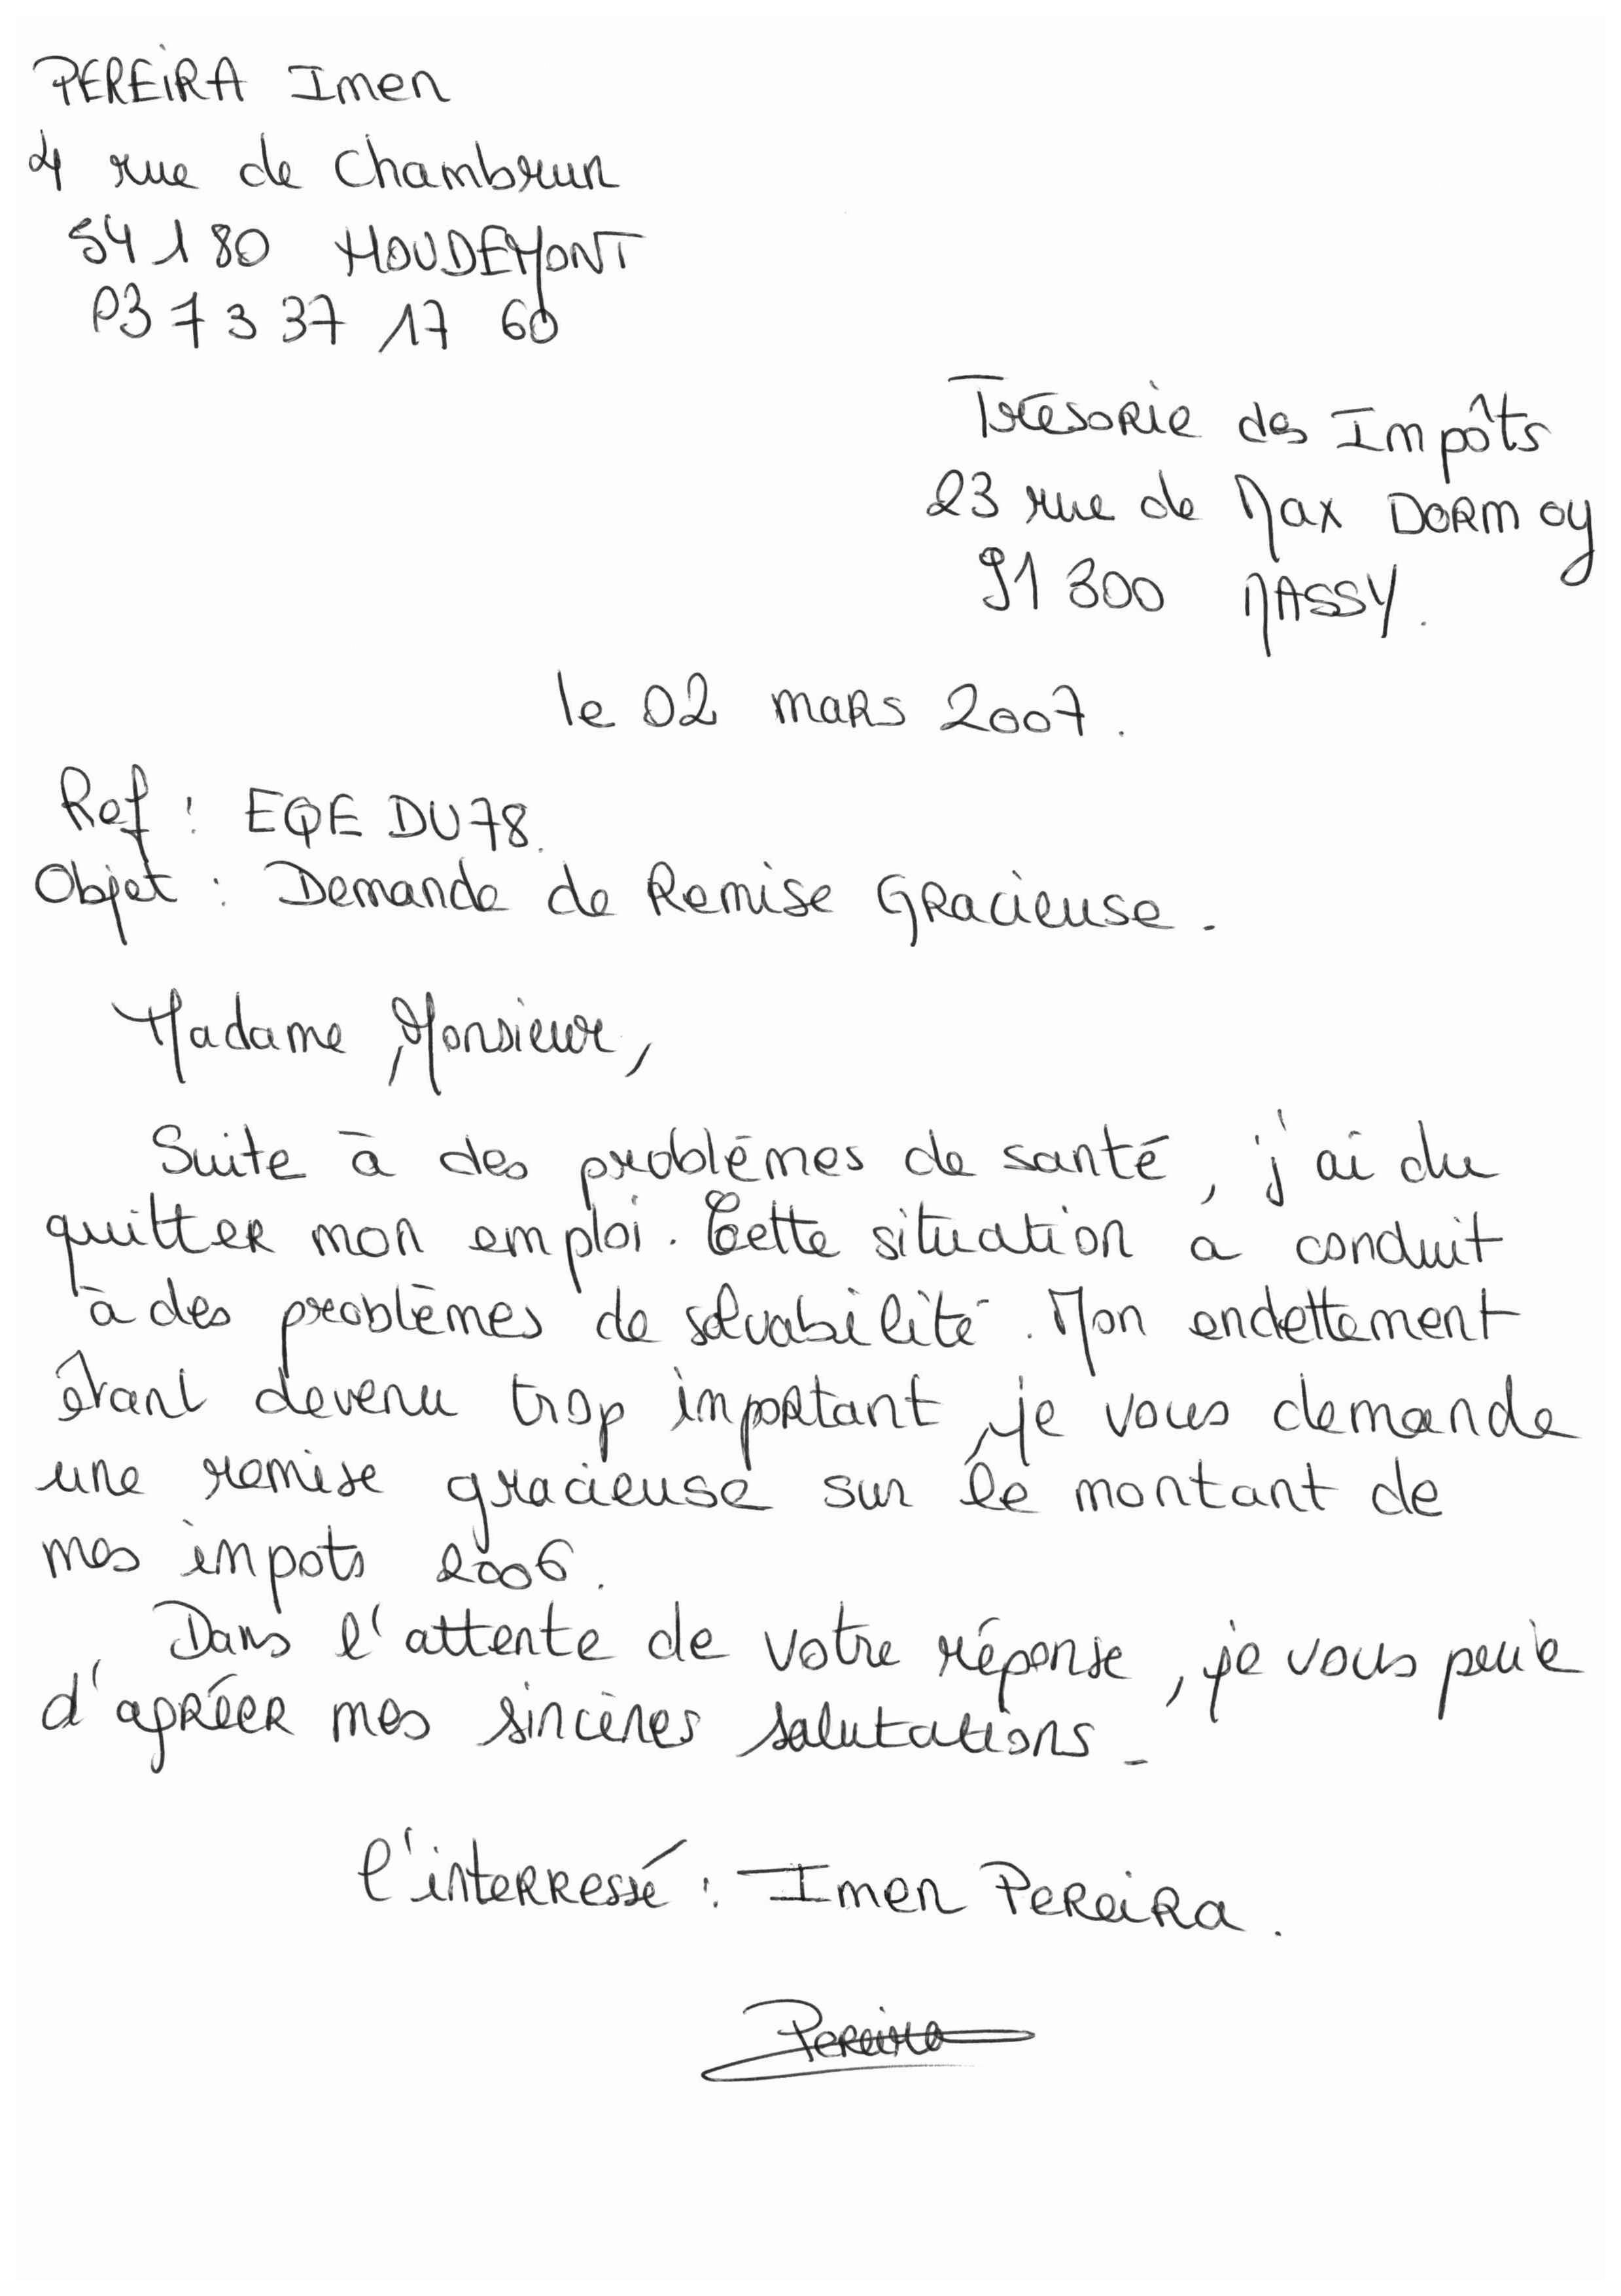 PEREIRA Imen
4 rue de Chambrun
54180 HOUDEMONT
03 73 37 17 60
Trésorie des Impôts
23 rue de Max DORMOY
91300 MASSY.
le 02 mars 2007.
Ref : EQEDU78.
Objet : Demande de Remise Gracieuse.
Madame, Monsieur,
Suite à des problèmes de santé, j'ai du
quitter mon emploi. Cette situation a conduit
à des problèmes de solvabilité. Mon endettement
étant devenu trop important, je vous demande
une remise gracieuse sur le montant de
mes impots 2006.
Dans l'attente de votre réponse, je vous prie
d'agréer mes sincères salutations.
l'interressé : Imen Pereira.
Pereira